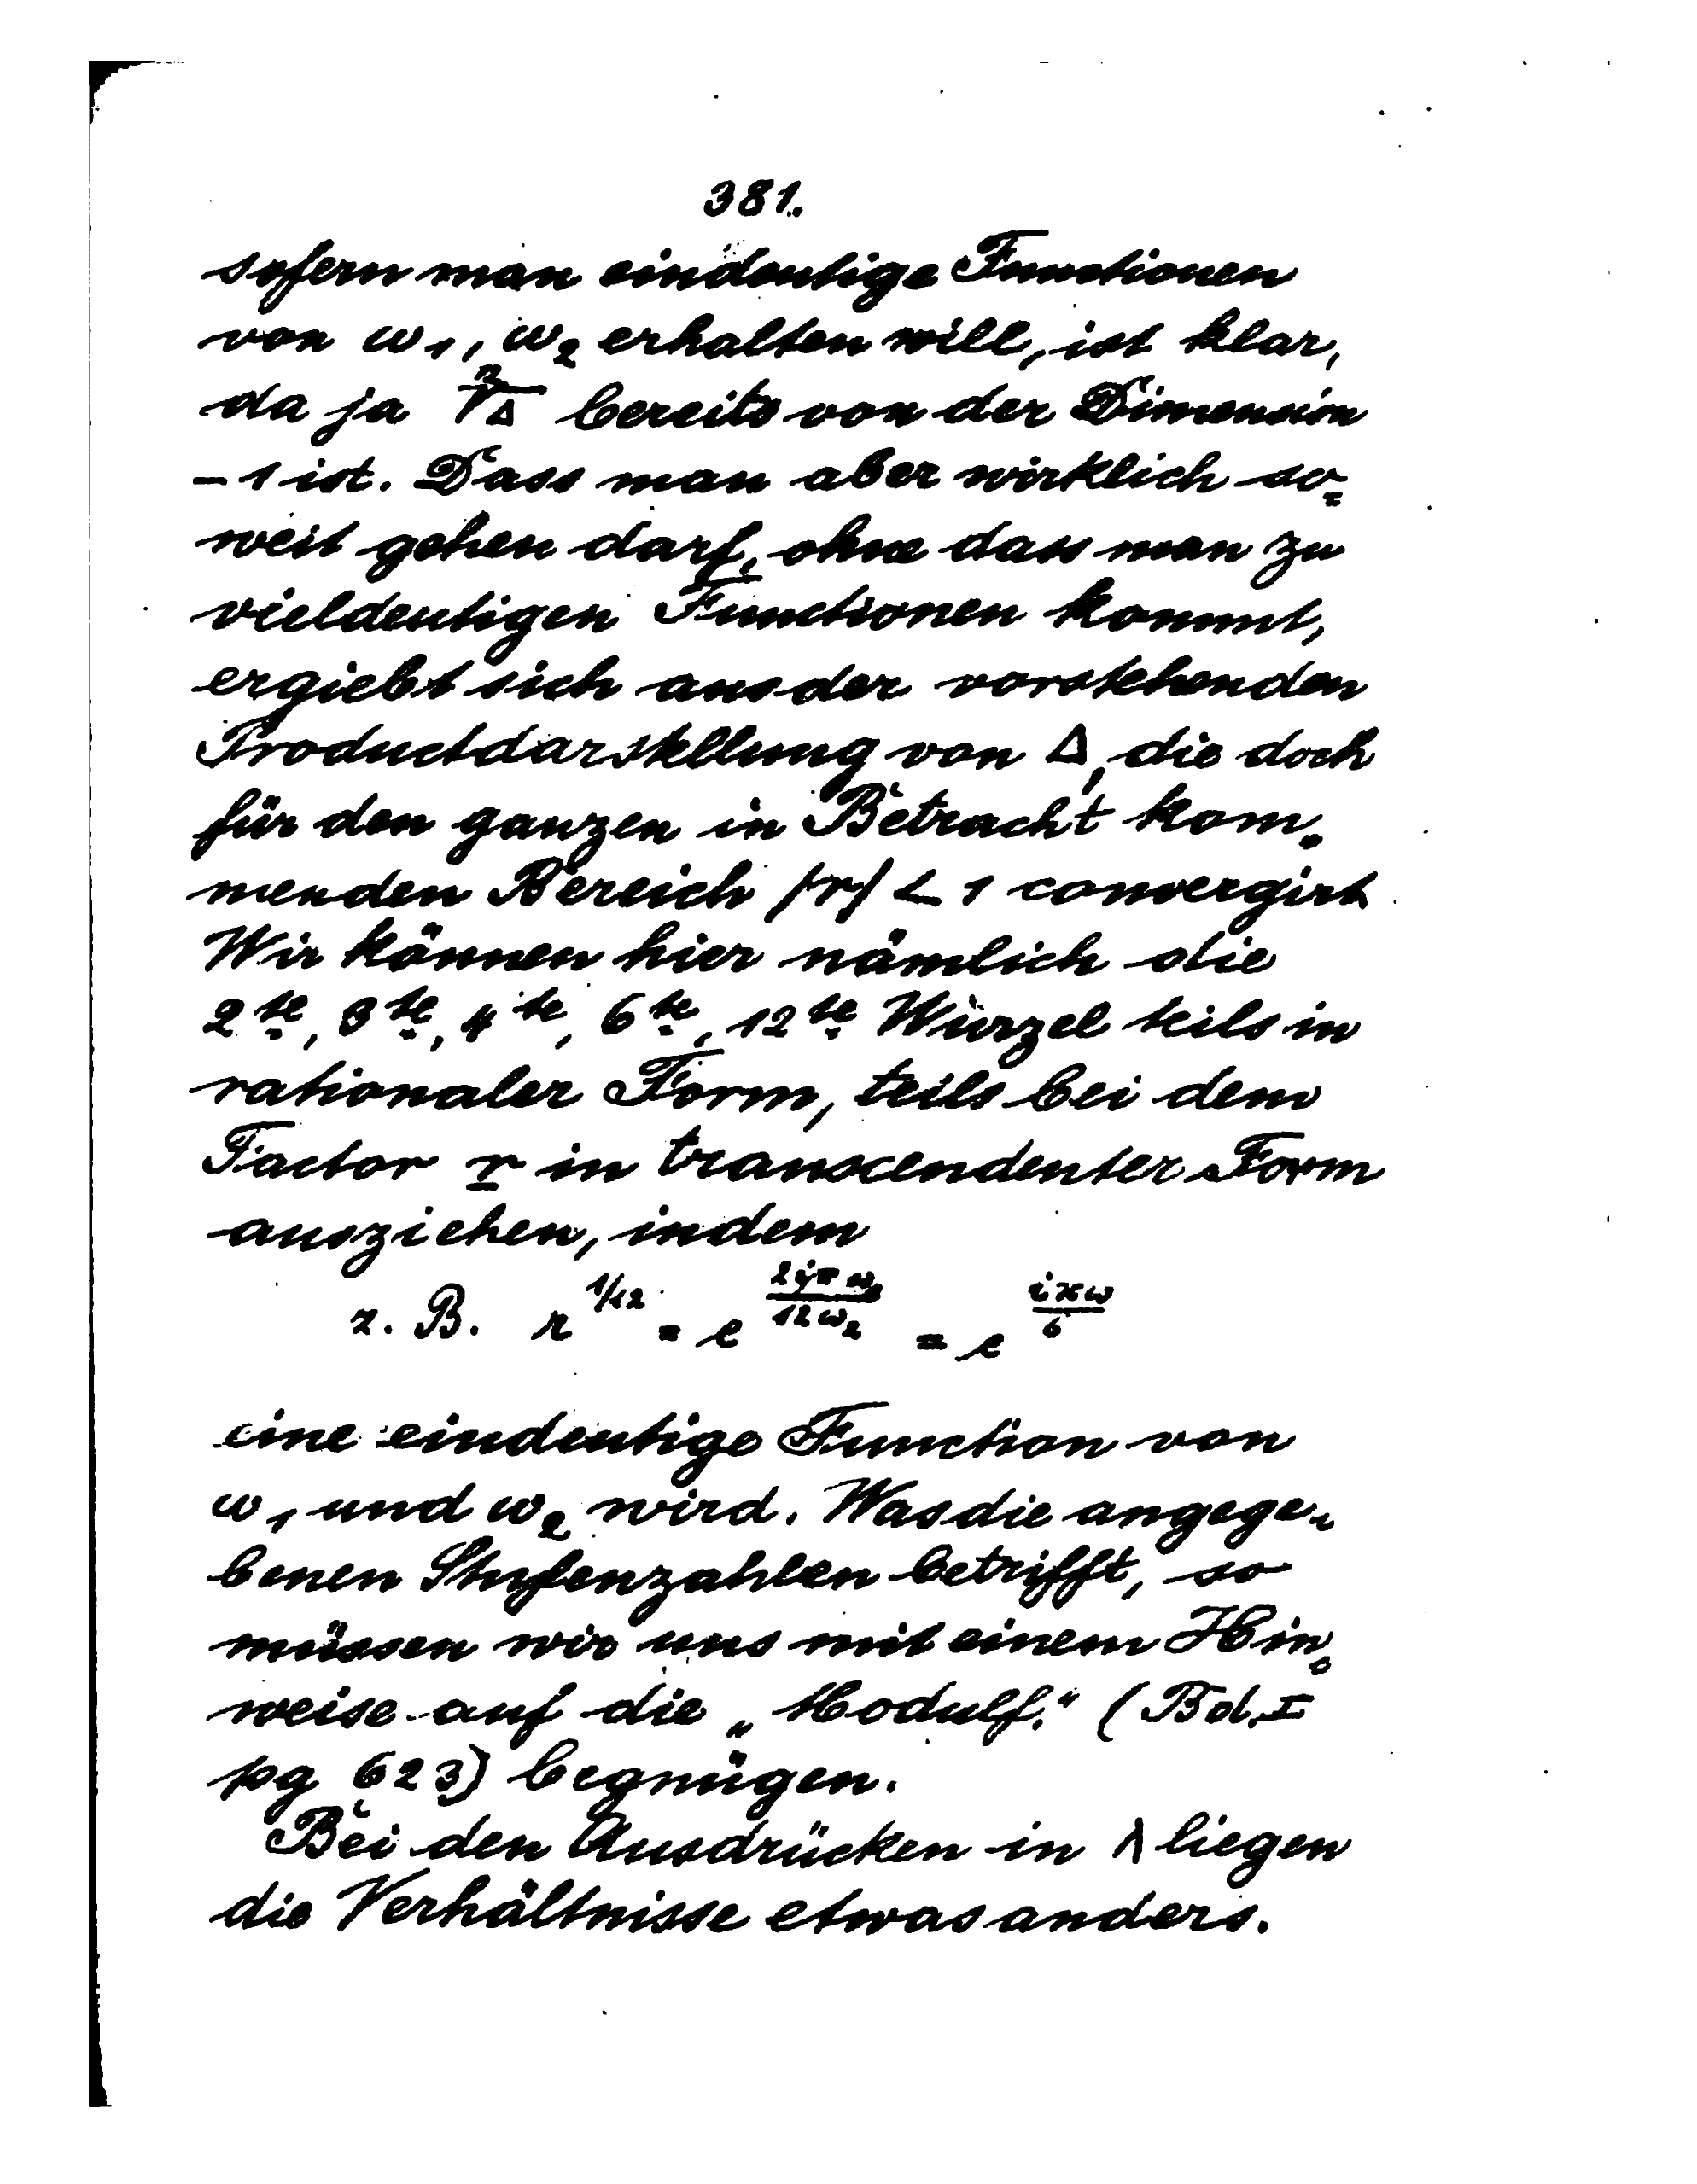 381.
sofern man eindeutige Functionen
von ω₁, ω₂ erhalten will, ist klar,
da ja ¹²√Δ bereits von der Dimension
– 1 ist. Dass man aber wirklich so=
weit gehen darf, ohne dass man zu
vieldeutigen Functionen kommt,
ergiebt sich aus der vorstehenden
Productdarstellung von Δ, die doch
für den ganzen in Betracht kom=
menden Bereich |r| < 1 convergirt
Wir können hier nämlich die
2te, 3te, 4te, 6te, 12te Wurzel teils in
rationaler Form, teils bei dem
Factor r in transcendenter Form
ausziehen, indem
z. B. r^{1/12} = e^{2iπω₁/12ω₂} = e^{iπω/6}
eine eindeutige Function von
ω₁ und ω₂ wird. Was die angege=
benen Stufenzahlen betrifft, so
müssen wir uns mit einem Hin=
weise auf die „Modulf.“ (Bd. I
pg 623) begnügen.
Bei den Ausdrücken in λ liegen
die Verhältnisse etwas anders.